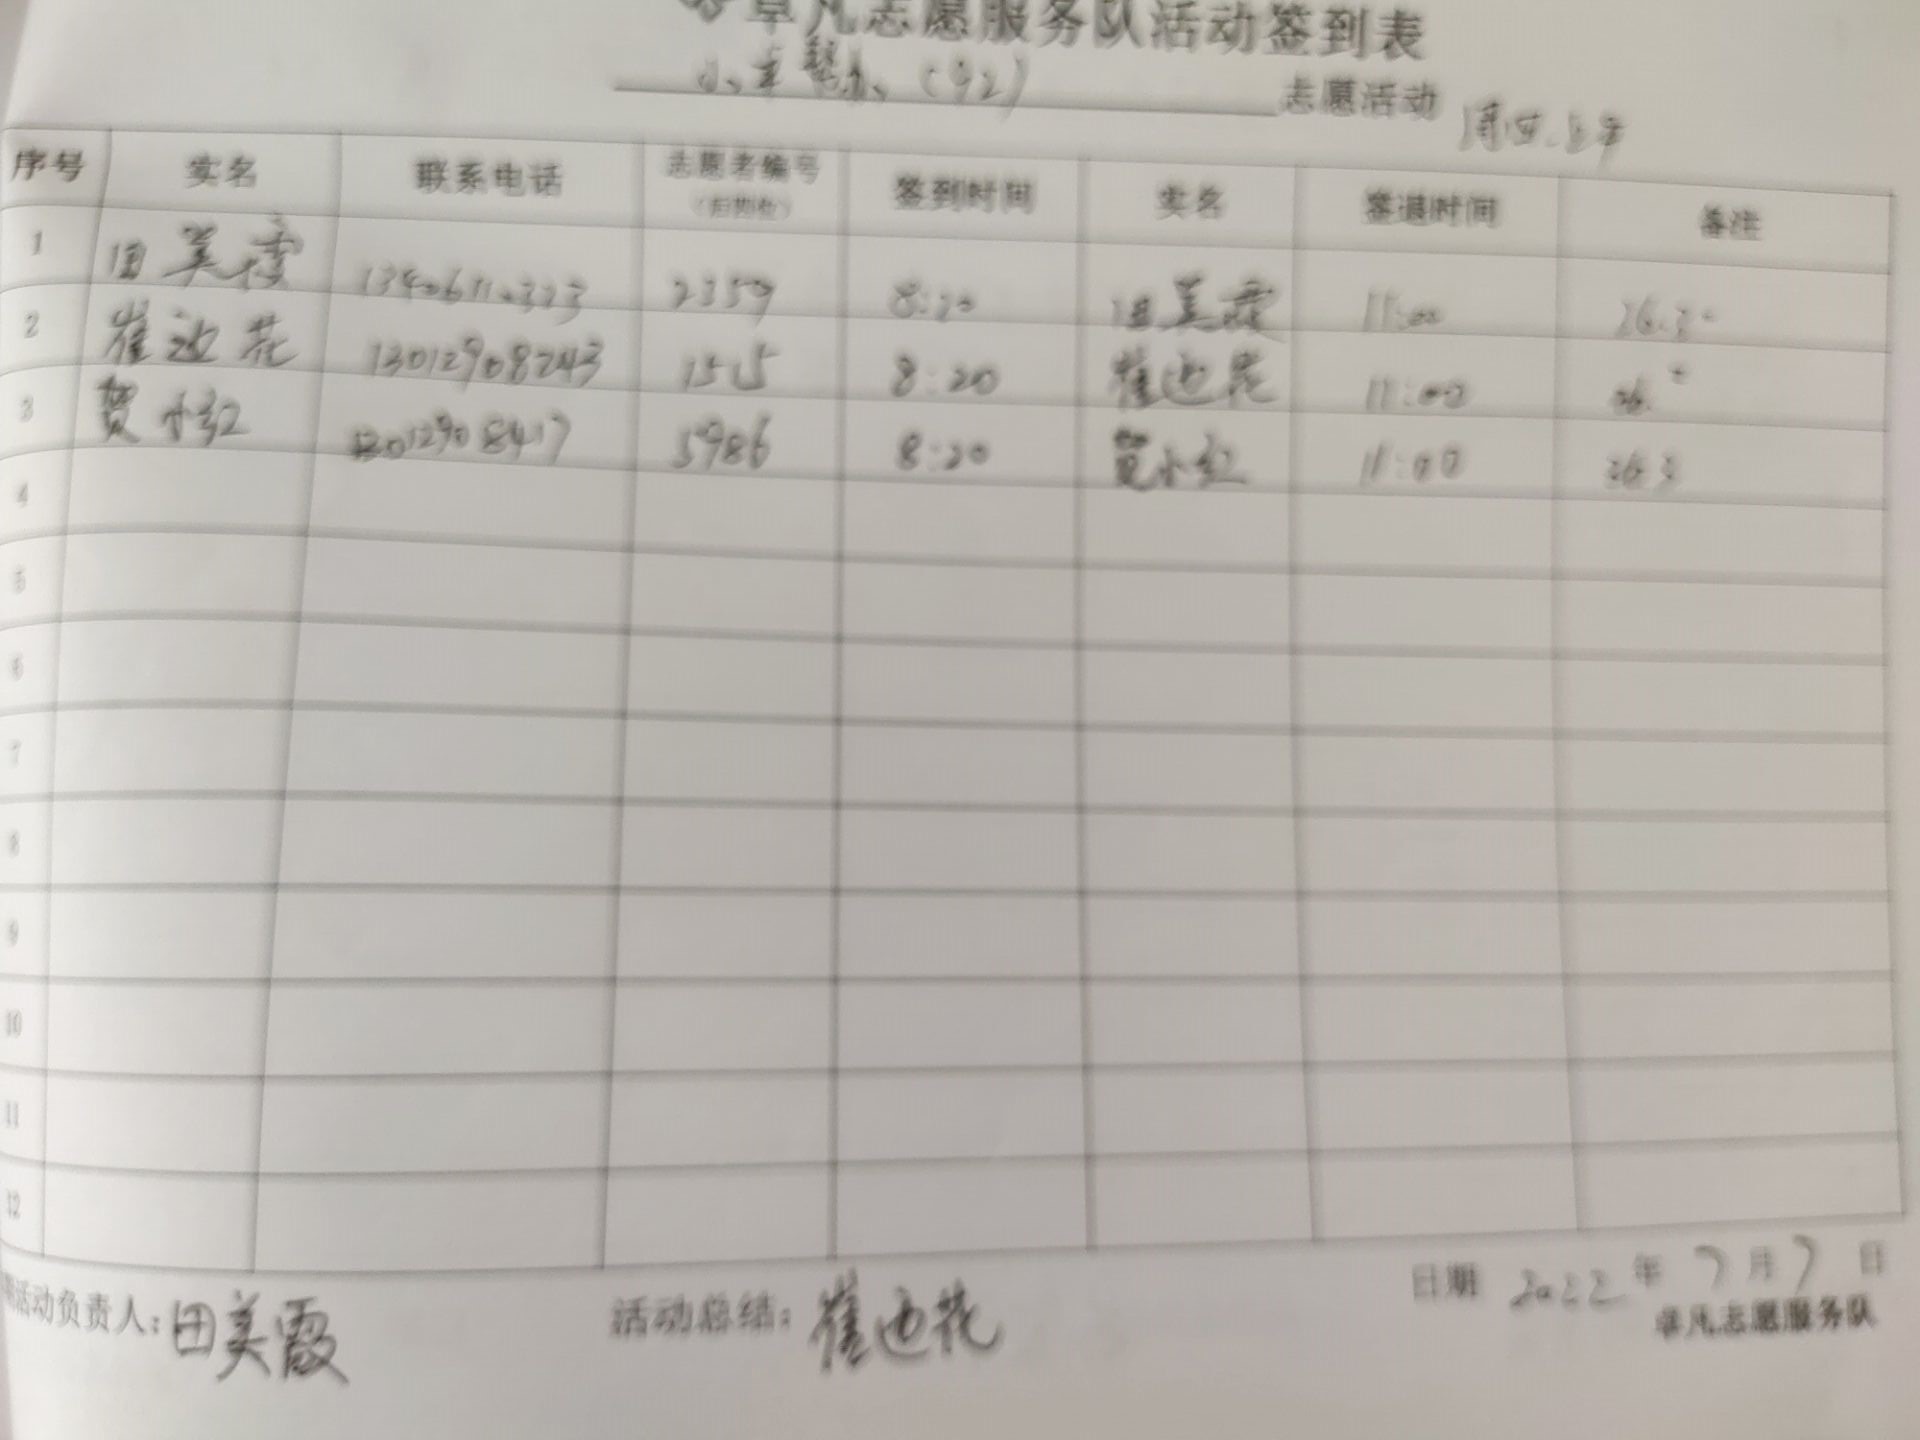 卓凡志愿服务队活动签到表
(92) 志愿活动 周四上午
序号 实名 联系电话 志愿者编号 签到时间 实名 签退时间 备注
(后四位)
1 田美霞 2359 8:20 田美霞 11:00
2 崔迎花 13012908243 1515 8:20 崔迎花 11:00
3 贺小红 13012908417 5986 8:20 贺小红 11:00
4
5
6
7
8
9
10
11
12
活动负责人：田美霞 活动总结：崔迎花 日期 2022年7月7日
卓凡志愿服务队